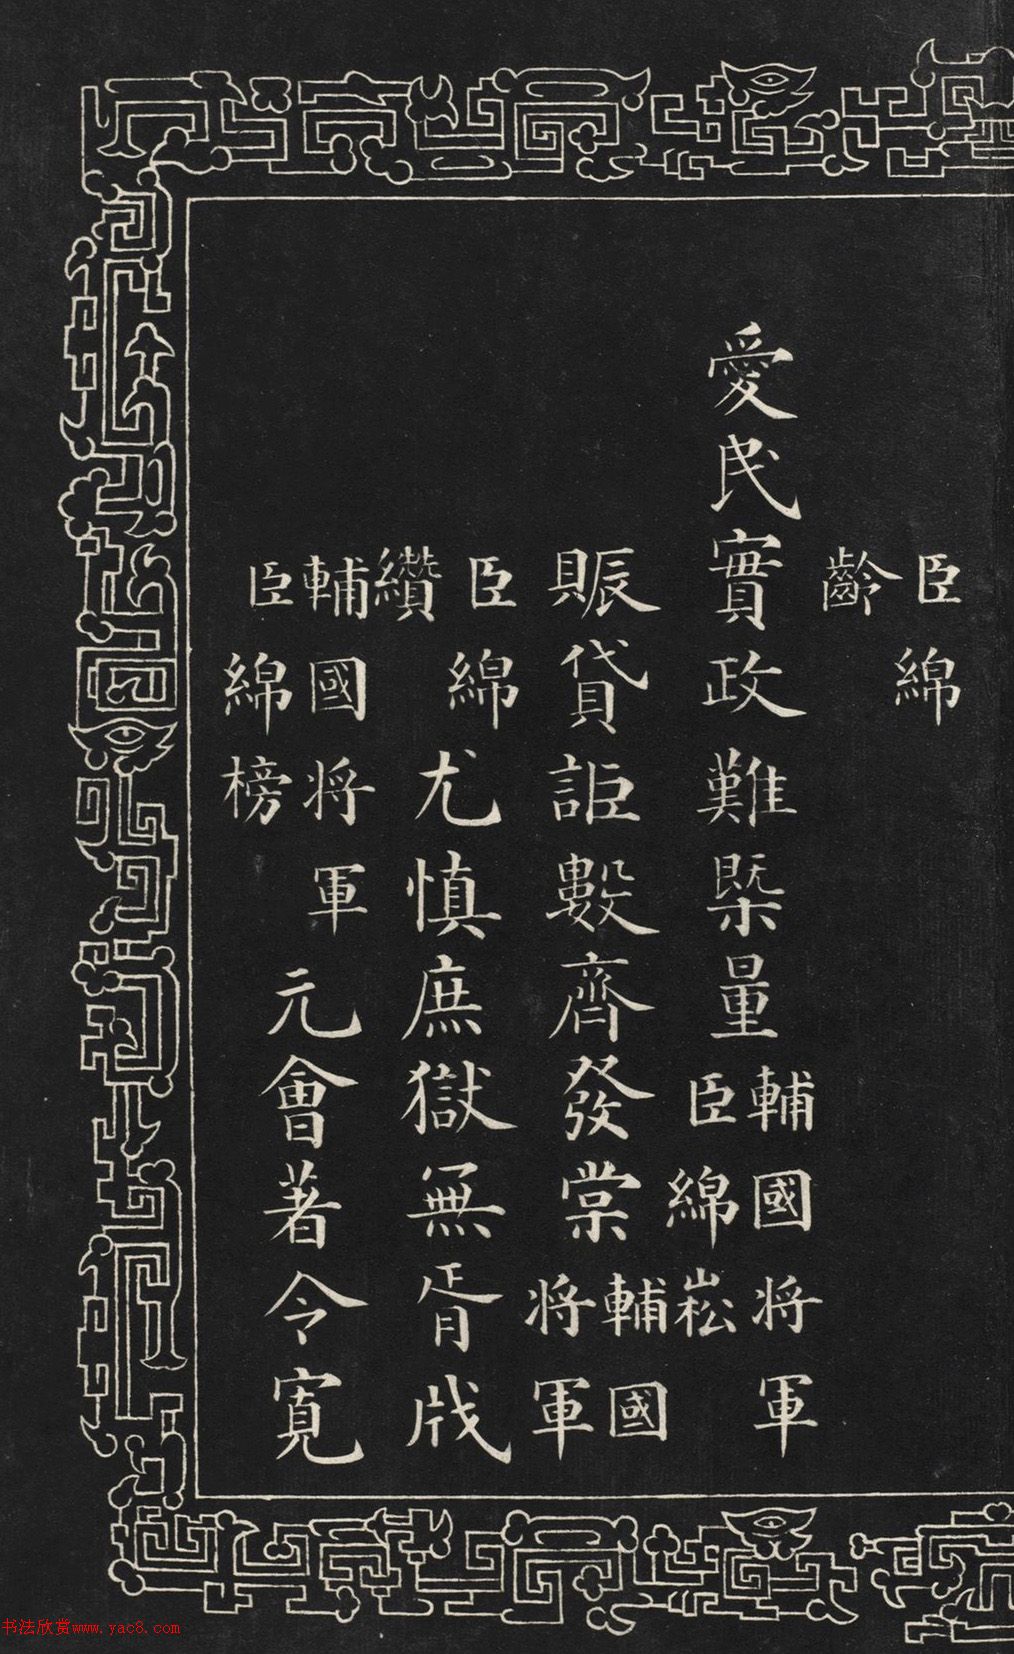 臣綿
齡
愛民實政難槩量
輔國将軍
臣綿崧
賑貸詎數齊發棠
輔國
将軍
臣綿
纘
尤慎庶獄無胥戕
輔國将軍
臣綿榜
元會著令寬
书法欣赏www.yac8.com